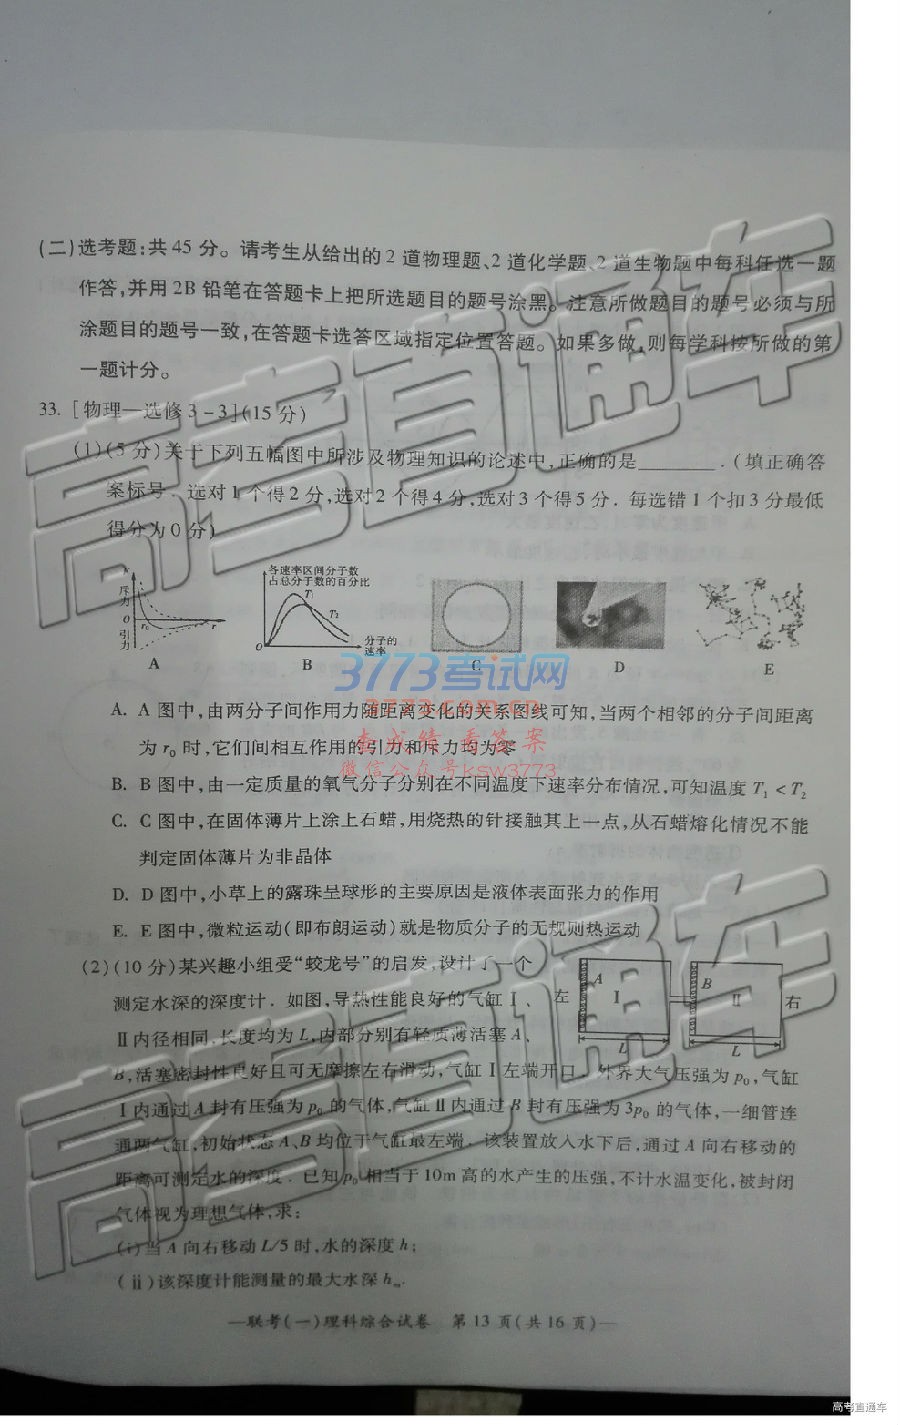 (二)选考题:共45分。请考生从给出的2道物理题、2道化学题、2道生物题中每科任选一题
作答,并用2B铅笔在答题卡上把所选题目的题号涂黑。注意所做题目的题号必须与所
涂题目的题号一致,在答题卡选答区域指定位置答题。如果多做,则每学科按所做的第
一题计分。
33.[物理—选修3-3](15分)
(1)(5分)关于下列五幅图中所涉及物理知识的论述中,正确的是______.(填正确答
案标号.选对1个得2分,选对2个得4分,选对3个得5分.每选错1个扣3分最低
得分为0分)
斥力
O
引力
r₀
r
A
各速率区间分子数
占总分子数的百分比
T₁
T₂
O
分子的
速率
B
C
D
E
3773考试网
3773.com.cn
查成绩 看答案
微信公众号ksw3773
A. A图中,由两分子间作用力随距离变化的关系图线可知,当两个相邻的分子间距离
为r₀时,它们间相互作用的引力和斥力均为零
B. B图中,由一定质量的氧气分子分别在不同温度下速率分布情况,可知温度T₁<T₂
C. C图中,在固体薄片上涂上石蜡,用烧热的针接触其上一点,从石蜡熔化情况不能
判定固体薄片为非晶体
D. D图中,小草上的露珠呈球形的主要原因是液体表面张力的作用
E. E图中,微粒运动(即布朗运动)就是物质分子的无规则热运动
(2)(10分)某兴趣小组受“蛟龙号”的启发,设计了一个
测定水深的深度计.如图,导热性能良好的气缸Ⅰ、
Ⅱ内径相同,长度均为L,内部分别有轻质薄活塞A、
B,活塞密封性良好且可无摩擦左右滑动,气缸Ⅰ左端开口.外界大气压强为p₀,气缸
Ⅰ内通过A封有压强为p₀的气体,气缸Ⅱ内通过B封有压强为3p₀的气体,一细管连
通两气缸,初始状态A、B均位于气缸最左端.该装置放入水下后,通过A向右移动的
距离可测定水的深度.已知p₀相当于10m高的水产生的压强,不计水温变化,被封闭
气体视为理想气体,求:
(ⅰ)当A向右移动L/5时,水的深度h;
(ⅱ)该深度计能测量的最大水深hₘ.
左
A
Ⅰ
B
Ⅱ
右
L
L
—联考(一)理科综合试卷 第13页(共16页)—
高考直通车
高考直通车
高考直通车